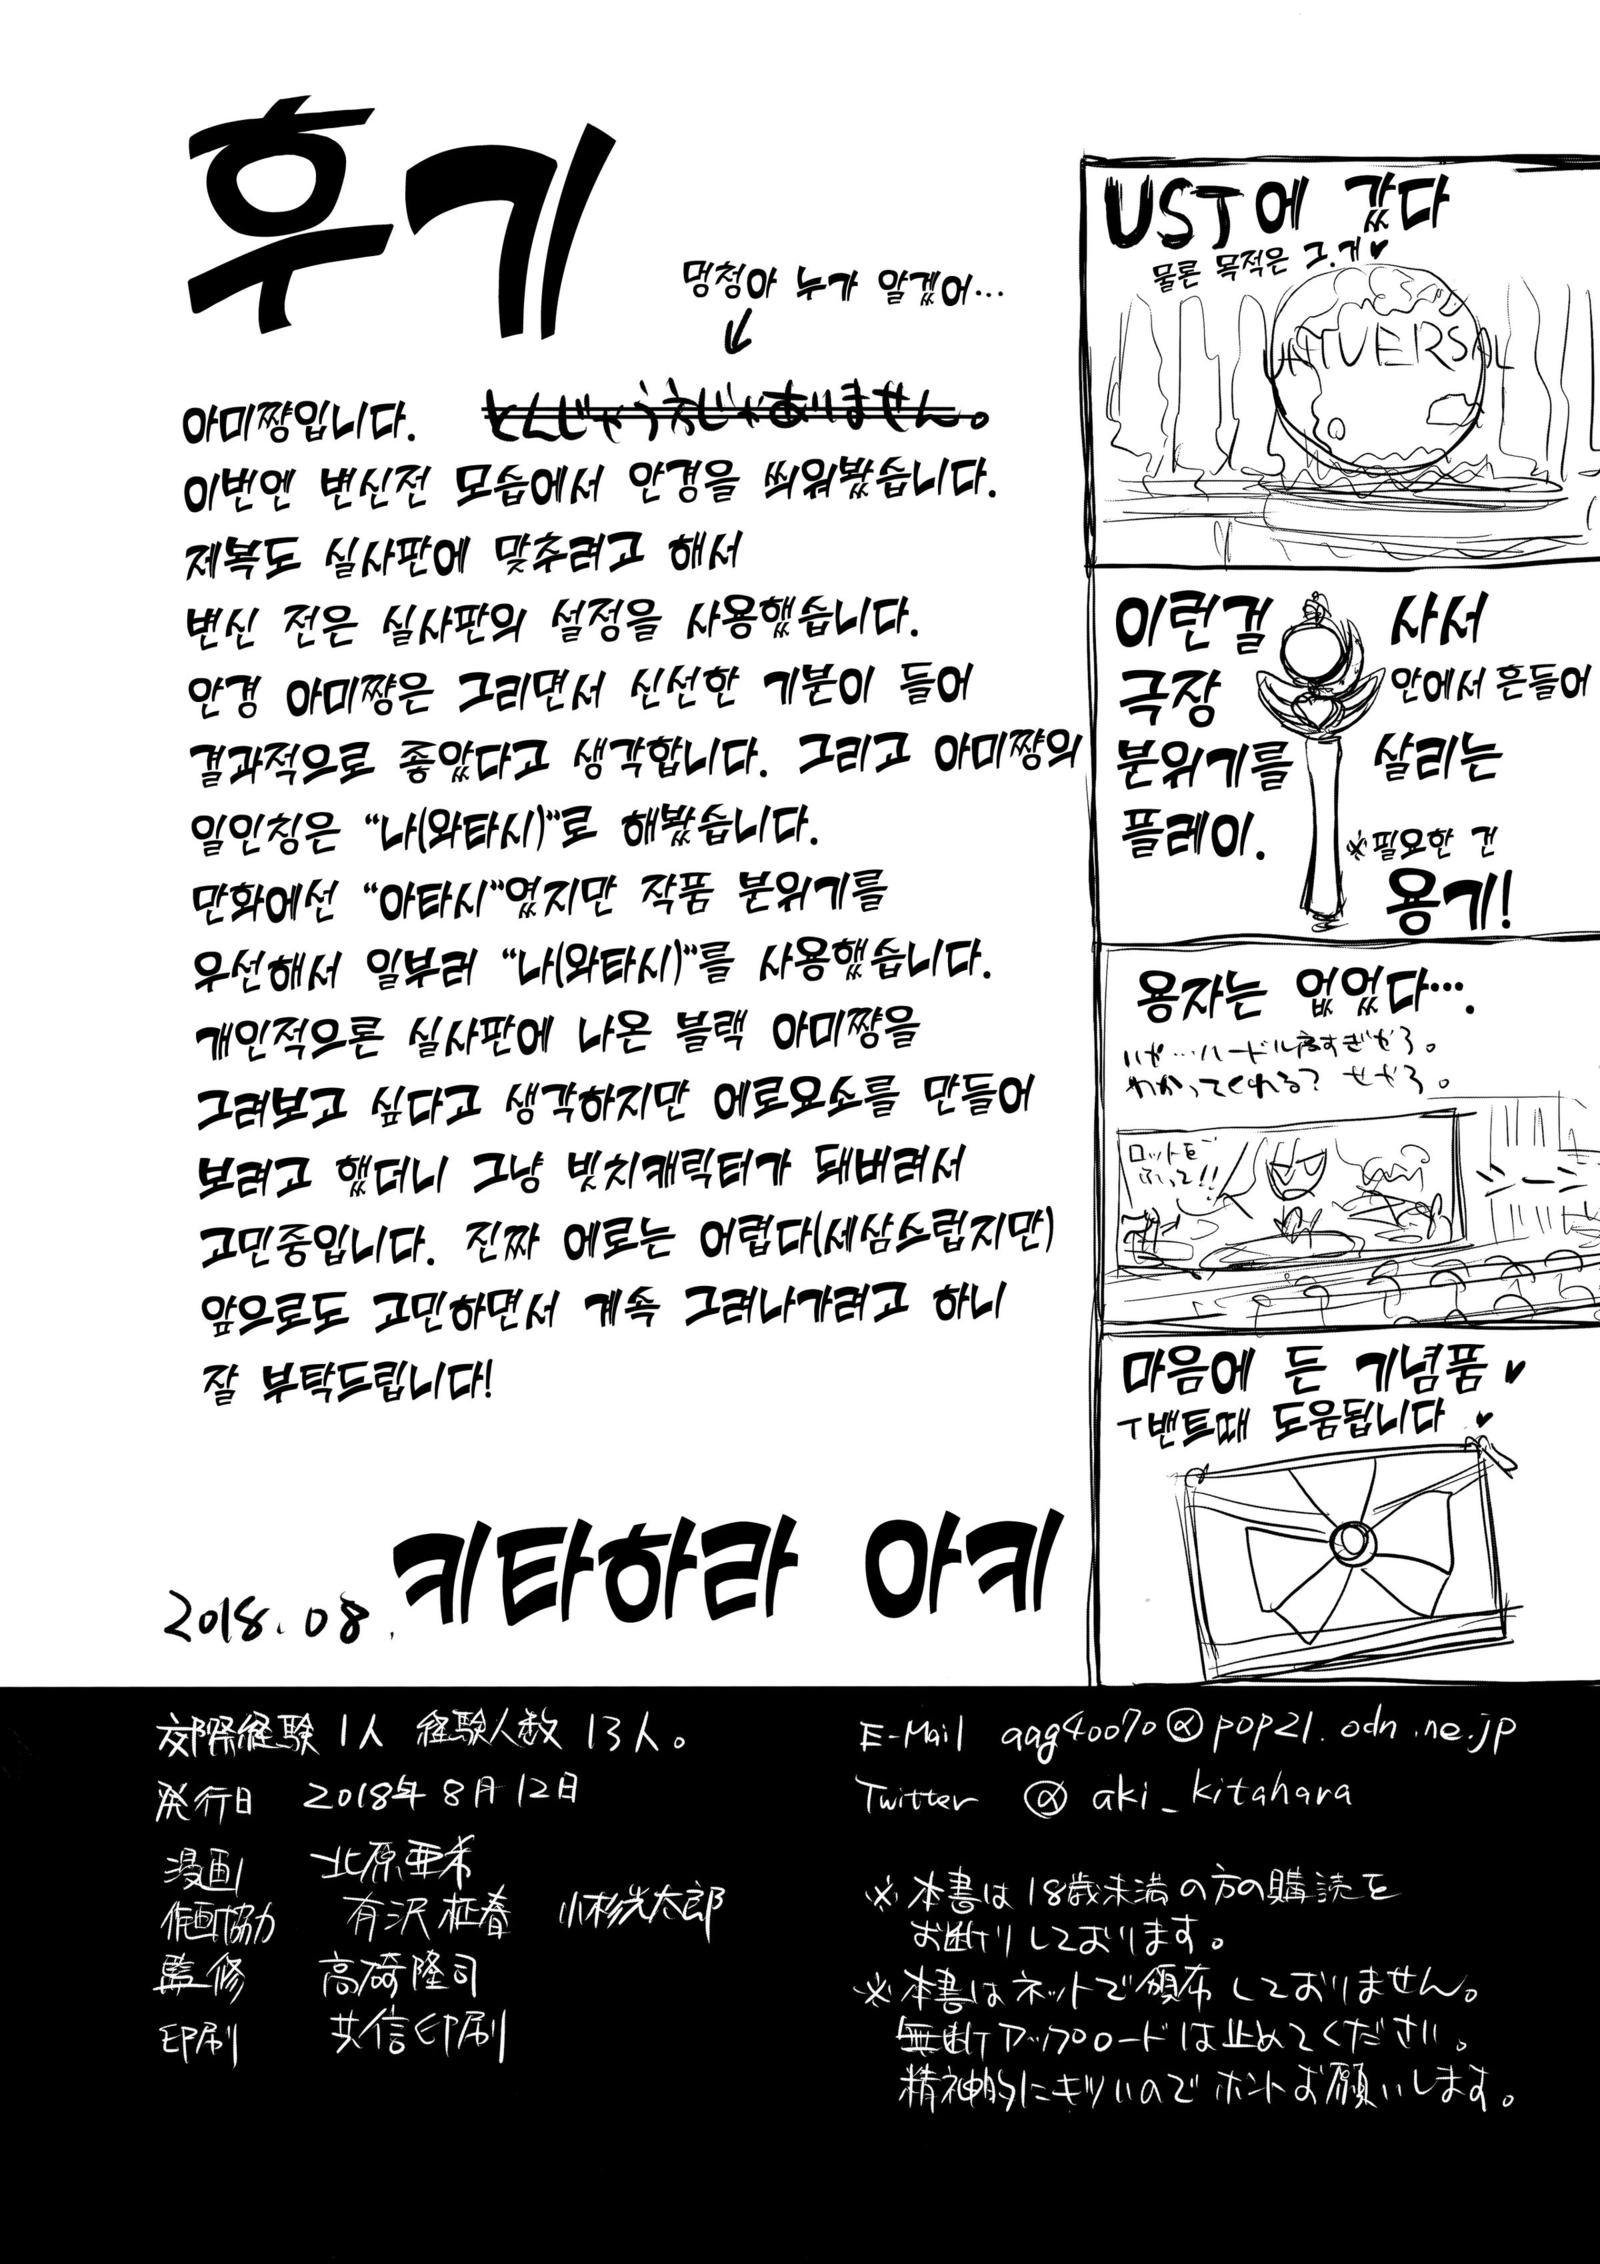 후기
멍청아 누가 알겠어...
아미쨩입니다. とんじゃうえじゃありません。
이번엔 변신전 모습에서 안경을 씌워봤습니다.
제복도 실사판에 맞추려고 해서
변신 전은 실사판의 설정을 사용했습니다.
안경 아미쨩은 그리면서 신선한 기분이 들어
결과적으로 좋았다고 생각합니다. 그리고 아미쨩의
일인칭은 "나(와타시)"로 해봤습니다.
만화에선 "아타시"였지만 작품 분위기를
우선해서 일부러 "나(와타시)"를 사용했습니다.
개인적으론 실사판에 나온 블랙 아미쨩을
그려보고 싶다고 생각하지만 에로요소를 만들어
보려고 했더니 그냥 빗치캐릭터가 돼버려서
고민중입니다. 진짜 에로는 어렵다(세삼스럽지만)
앞으로도 고민하면서 계속 그려나가려고 하니
잘 부탁드립니다!
2018.08. 키타하라 아키
UST에 갔다
물론 목적은 그.거♥
UNIVERSAL
이런걸 사서
극장 안에서 흔들어
분위기를 살리는
플레이.
※필요한 건
용기!
용자는 없었다....
いや…ハードル高すぎやろ。
わかってくれる？せやろ。
ロットを
ふって!!
シーン
마음에 든 기념품♥
T벤트때 도움됩니다♥
交際経験1人 経験人数13人。
発行日 2018年8月12日
漫画 北原亜希
作画協力 有沢柾春 小杉光太郎
監修 高碕隆司
印刷 共信印刷
E-Mail aag40070@pop21.odn.ne.jp
Twitter @aki_kitahara
※本書は18歳未満の方の購読を
お断りしております。
※本書はネットで頒布しておりません。
無断アップロードは止めてください。
精神的にキツいのでホントお願いします。